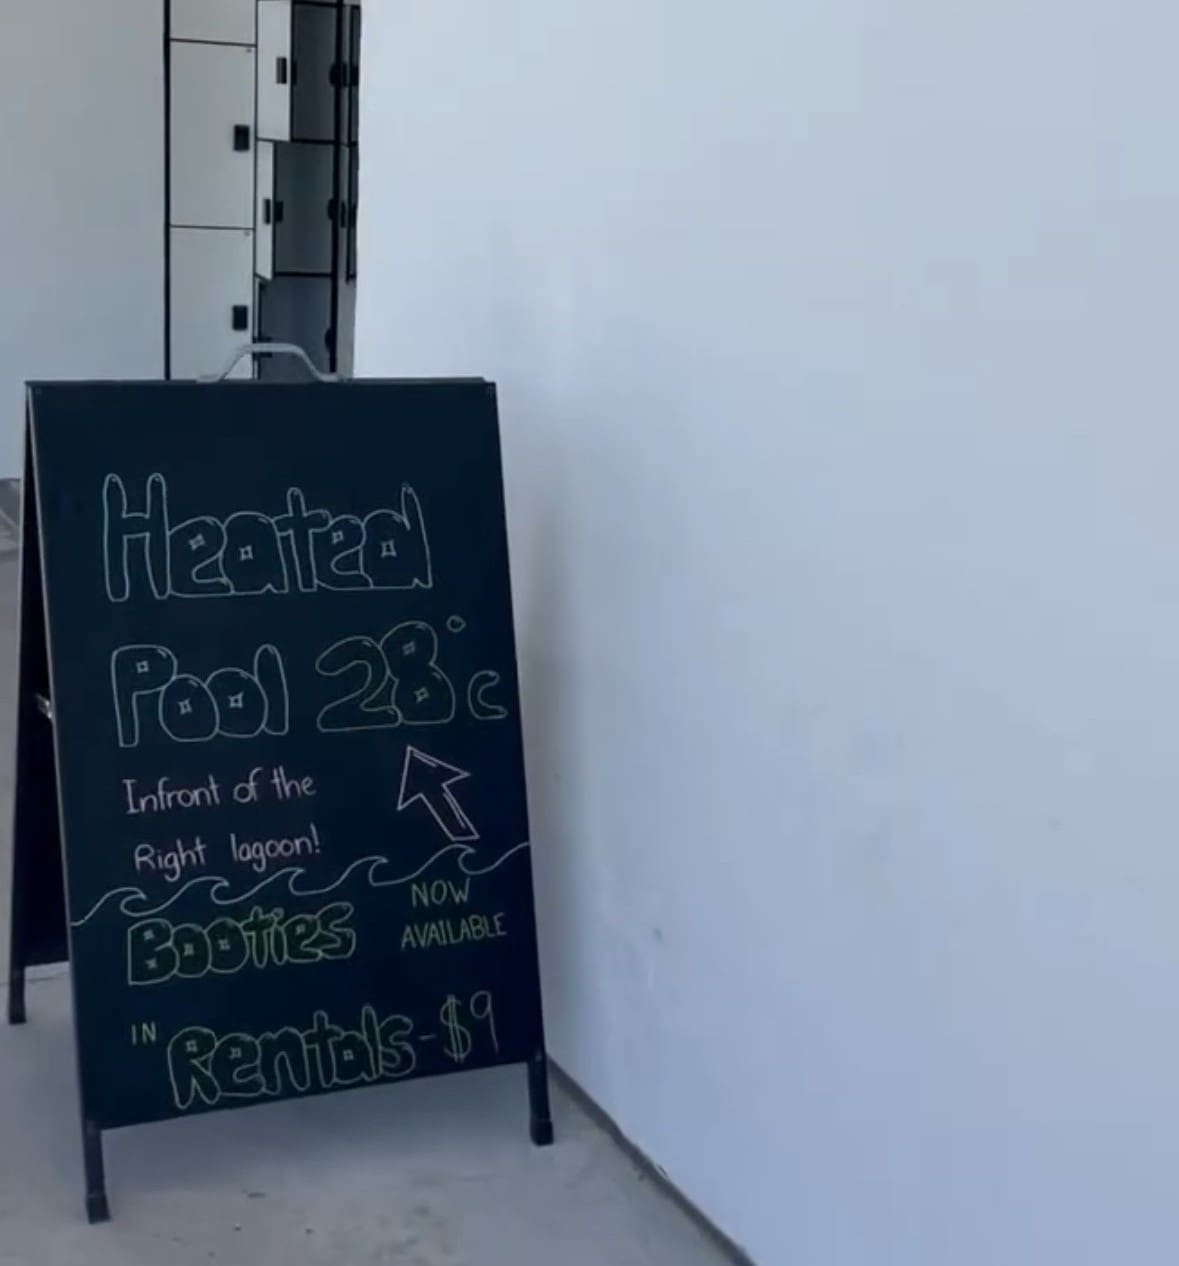 Heated
Pool 28°c
Infront of the
Right lagoon!
Booties NOW
AVAILABLE
IN Rentals-$9